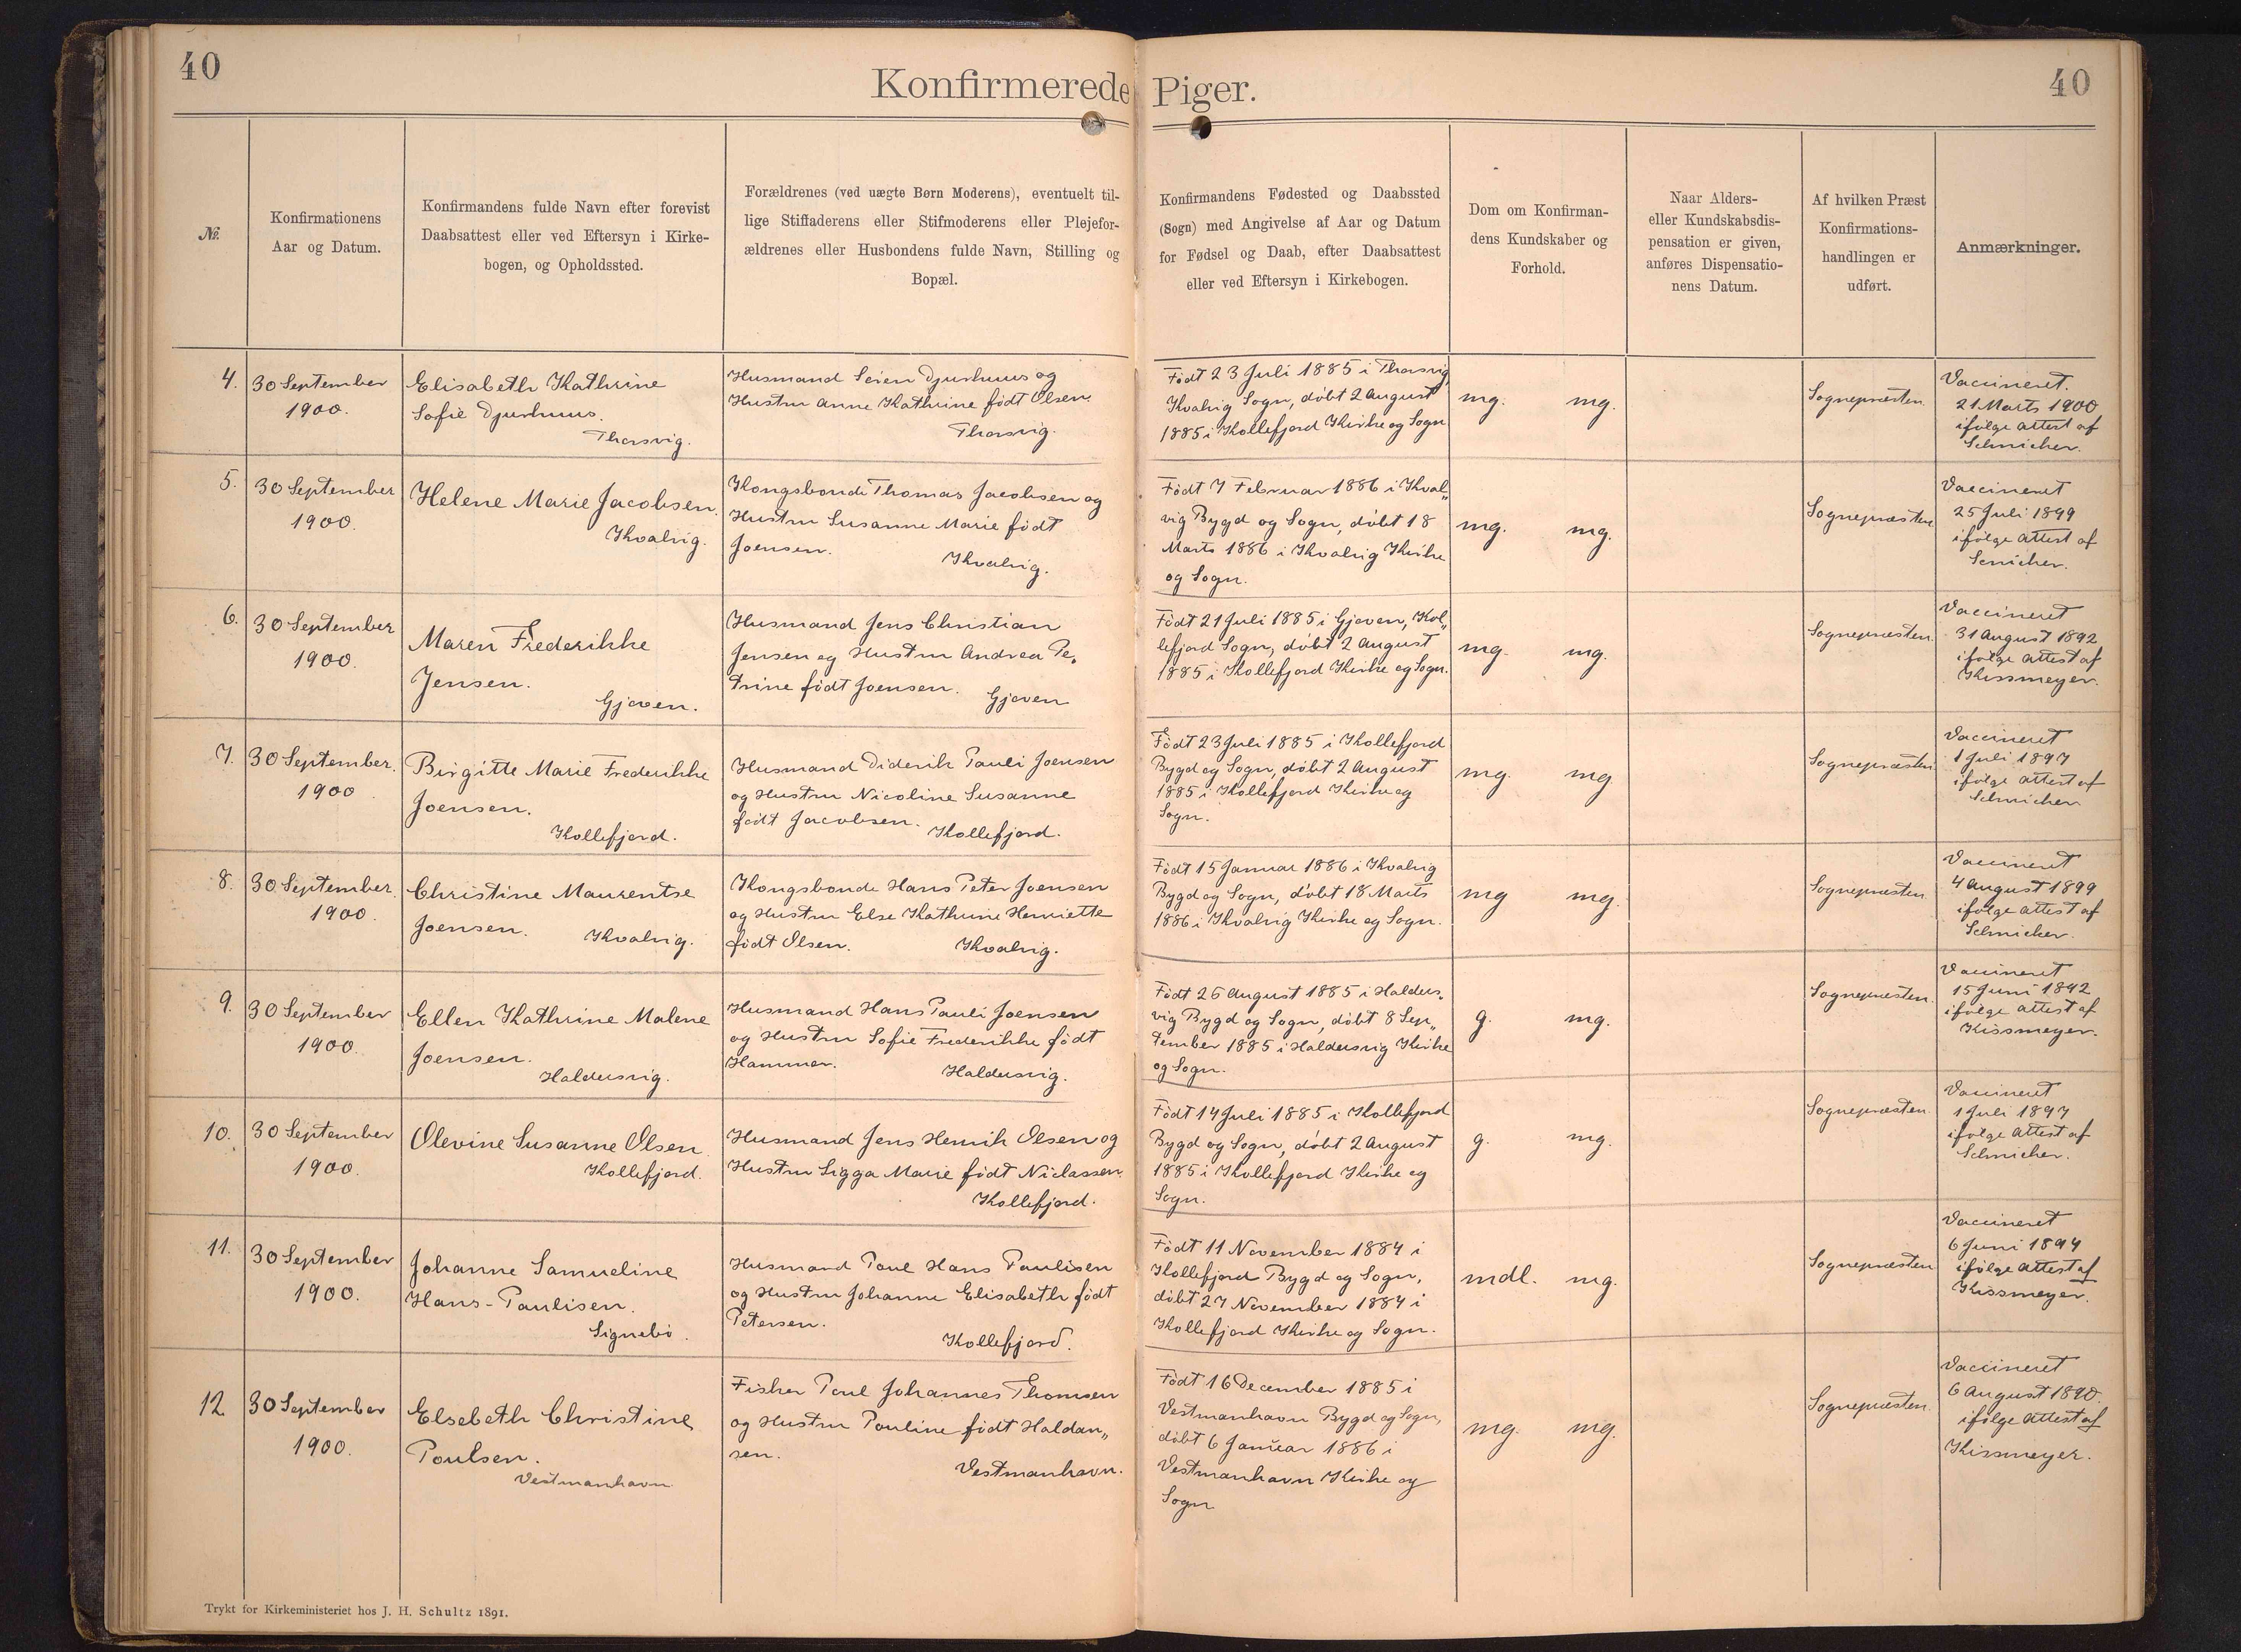 40
Konfirmerede Piger.
40
№.
Konfirmationens
Aar og Datum.
Konfirmandens fulde Navn efter forevist
Daabsattest eller ved Eftersyn i Kirke-
bogen, og Opholdssted.
Forældrenes (ved uægte Børn Moderens), eventuelt til-
lige Stiffaderens eller Stifmoderens eller Plejefor-
ældrenes eller Husbondens fulde Navn, Stilling og
Bopæl.
Konfirmandens Fødested og Daabssted
(Sogn) med Angivelse af Aar og Datum
for Fødsel og Daab, efter Daabsattest
eller ved Eftersyn i Kirkebogen.
Dom om Konfirman-
dens Kundskaber og
Forhold.
Naar Alders-
eller Kundskabsdis-
pensation er given,
anføres Dispensatio-
nens Datum.
Af hvilken Præst
Konfirmations-
handlingen er
udført.
Anmærkninger.
4.
30 September
1900.
Elisabeth Kathrine
Sofie Djurhuus.
Thorsvig.
Husmand Seien Djurhuus og
Hustru Anne Kathrine født Olsen.
Thorsvig.
Født 23 Juli 1885 i Thorsvig,
Kvalvig Sogn, døbt 2 August
1885 i Kollefjord Kirke og Sogn
mg. mg.
Sognepræsten.
Vaccineret.
21 Marts 1900
ifølge attest af
Schnicher.
5.
30 September
1900.
Helene Marie Jacobsen.
Kvalvig.
Kongsbonde Thomas Jacobsen og
Hustru Susanne Marie født
Joensen.
Kvalvig.
Født 7 Februar 1886 i Kval„
vig Bygd og Sogn, døbt 18
Marts 1886 i Kvalvig Kirke
og Sogn.
mg. mg.
Sognepræsten
Vaccineret
25 Juli 1899
ifølge attest af
Scnicher.
6.
30 September
1900.
Maren Frederikke
Jensen.
Gjoven.
Husmand Jens Christian
Jensen og Hustru Andrea Pe„
trine født Joensen.
Gjoven
Født 21 Juli 1885 i Gjoven, Kol„
lefjord Sogn, døbt 2 August
1885 i Kollefjord Kirke og Sogn.
mg. mg.
Sognepræsten
Vaccineret
31 August 1892
ifølge attest af
Kissmeyer.
7.
30 September.
1900
Birgitte Marie Frederikke
Joensen.
Kollefjord.
Husmand Diderik Pauli Joensen
og Hustru Nicoline Susanne
født Jacobsen.
Kollefjord.
Født 23 Juli 1885 i Kollefjord
Bygd og Sogn, døbt 2 August
1885 i Kollefjord Kirke og
Sogn.
mg. mg.
Sognepræsten
Vaccineret
1 Juli 1897
ifølge attest af
Schnicher
8.
30. September.
1900.
Christine Maurentse
Joensen.
Kvalvig.
Kongsbonde Hans Peter Joensen
og Hustru Else Kathrine Henriette
født Olsen.
Kvalvig.
Født 15 Januar 1886 i Kvalvig
Bygd og Sogn, døbt 18 Marts
1886 i Kvalvig Kirke og Sogn.
mg mg.
Sognepræsten
Vaccineret
4 August 1899
ifølge attest af
Schnicher.
9.
30 September
1900.
Ellen Kathrine Malene
Joensen.
Haldersvig.
Husmand Hans Pauli Joensen
og Hustru Sofie Frederikke født
Hammer.
Haldersvig.
Født 26 August 1885 i Halders„
vig Bygd og Sogn, døbt 8 Sep„
tember 1885 i Haldersvig Kirke
og Sogn.
g. mg.
Sognepræsten.
Vaccineret
15 Juni 1892
ifølge attest af
Kissmeyer.
10.
30 September
1900.
Olevine Susanne Olsen.
Kollefjord.
Husmand Jens Henrik Olsen og
Hustru Sigga Marie født Niclassen.
Kollefjord.
Født 14 Juli 1885 i Kollefjord
Bygd og Sogn, døbt 2 August
1885 i Kollefjord Kirke og
Sogn.
g. mg.
Sognepræsten
Vaccineret
1 Juli 1897
ifølge attest af
Schnicher.
11.
30 September
1900.
Johanne Samueline
Hans-Paulisen.
Signebø.
Husmand Poul Hans Paulisen
og Hustru Johanne Elisabeth født
Petersen.
Kollefjord.
Født 11 November 1884 i
Kollefjord Bygd og Sogn,
døbt 27 November 1884 i
Kollefjord Kirke og Sogn.
mdl. mg.
Sognepræsten
Vaccineret
6 Juni 1894
ifølge attest af
Kissmeyer.
12
30 September
1900.
Elsebeth Christine
Poulsen.
Vestmanhavn
Fisker Poul Johannes Thomsen
og Hustru Pouline født Haldan„
sen.
Vestmanhavn.
Født 16 December 1885 i
Vestmanhavn Bygd og Sogn,
døbt 6 Januar 1886 i
Vestmanhavn Kirke og
Sogn
mg. mg.
Sognepræsten.
Vaccineret
6 August 1890.
ifølge attest af
Kissmeyer.
Trykt for Kirkeministeriet hos J. H. Schultz 1891.